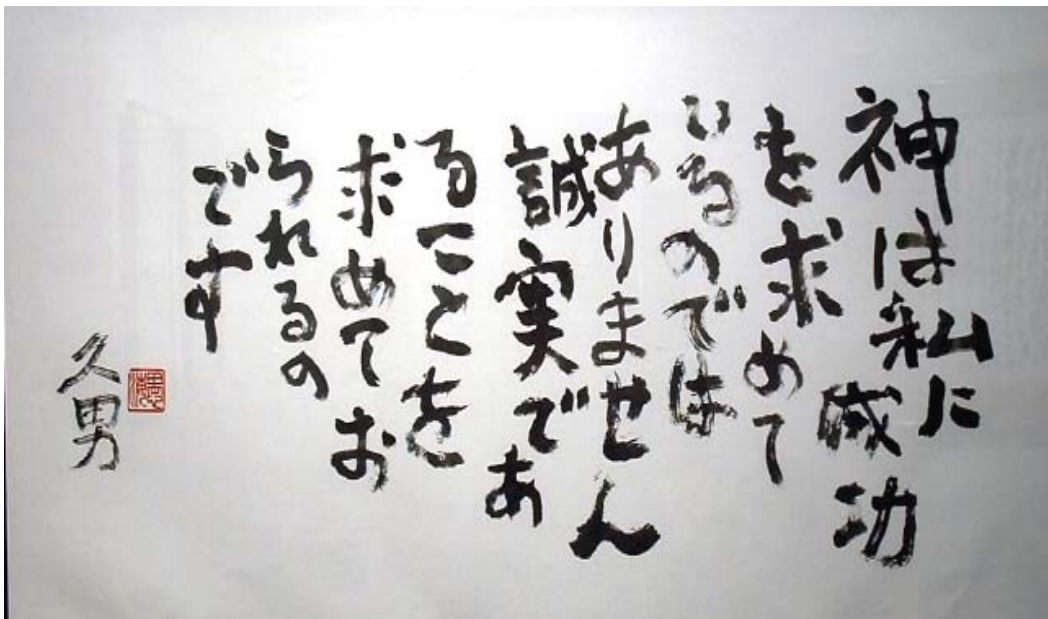 神は私に
成功
を求めて
いるのでは
ありません
誠実であ
ることを
求めてお
られるの
です
久男